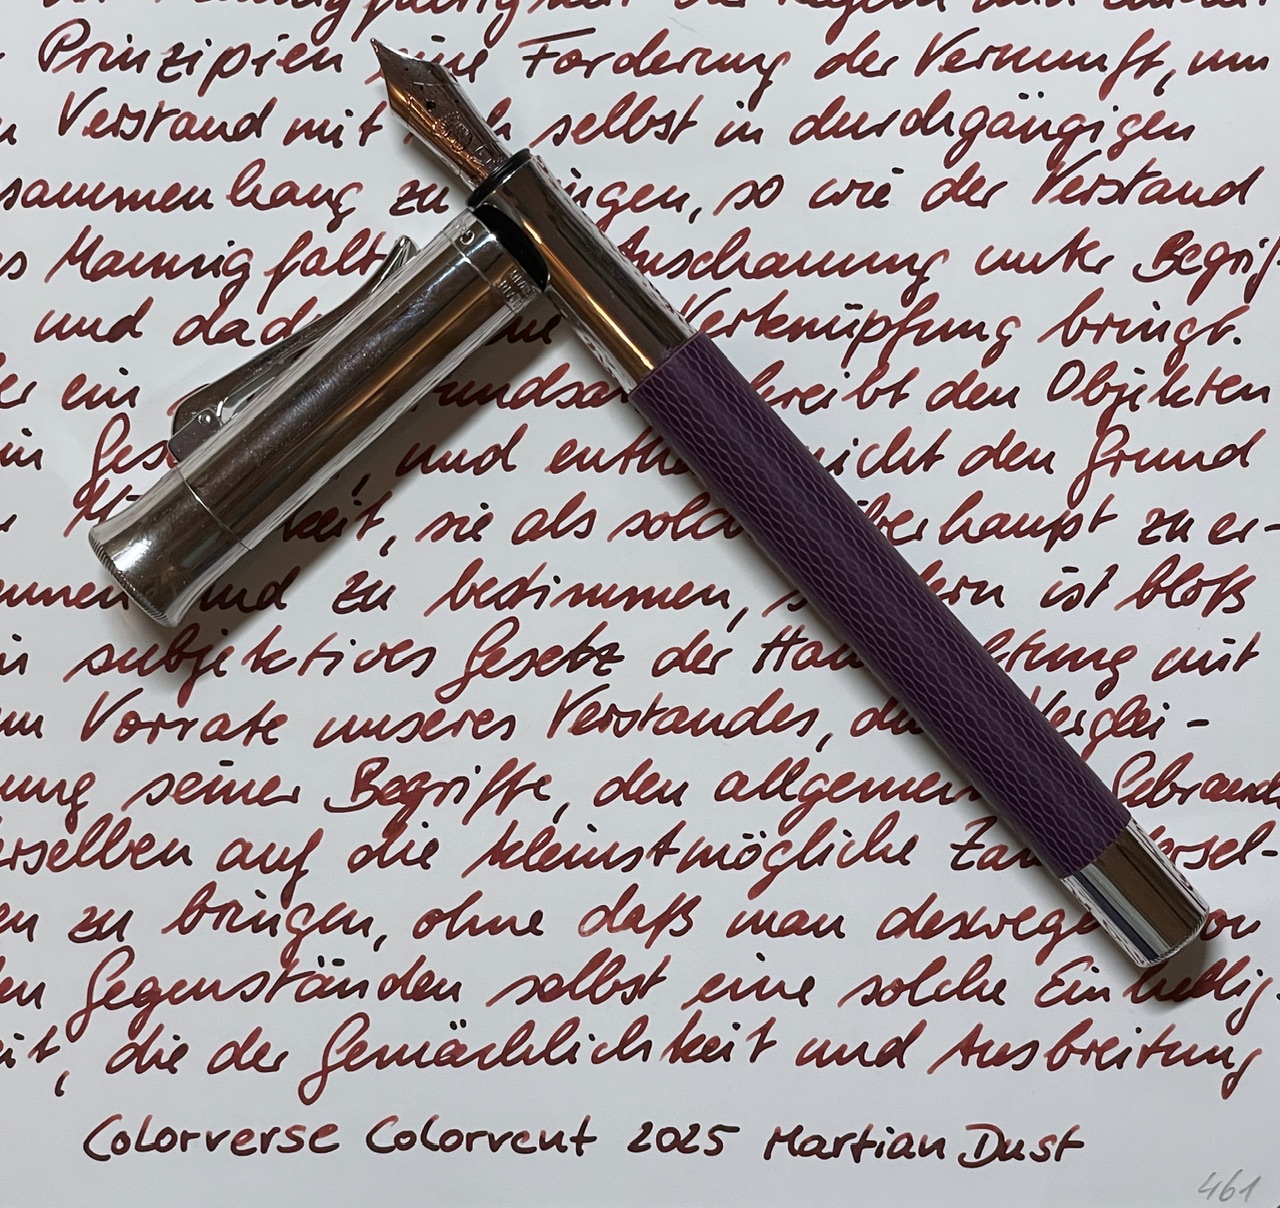 Mannigfaltigkeit der Regeln und
Prinzipien eine Forderung der Vernunft, um
Verstand mit selbst in durchgängigen
sammenhang zu ingen, so wie der Verstand
s Mannigfalt Anschauung unter Begrif-
und dad ne Verknüpfung bringt.
er ein rundsa hreibt den Objekten
in Ges , und enthä nicht den Grund
keit, sie als solc berhaupt zu er-
nnen und zu bestimmen, s ern ist bloß
n subjektives Gesetz der Hau ltung mit
m Vorrate unseres Verstandes, du Verglei-
ung seiner Begriffe, den allgemein Gebrauch
rselben auf die kleinstmögliche Za ersel-
en zu bringen, ohne daß man deswege von
en Gegenständen selbst eine solche Einhellig-
eit, die der Gemächlichkeit und Ausbreitung
Colorverse Colorvent 2025 Martian Dust
461